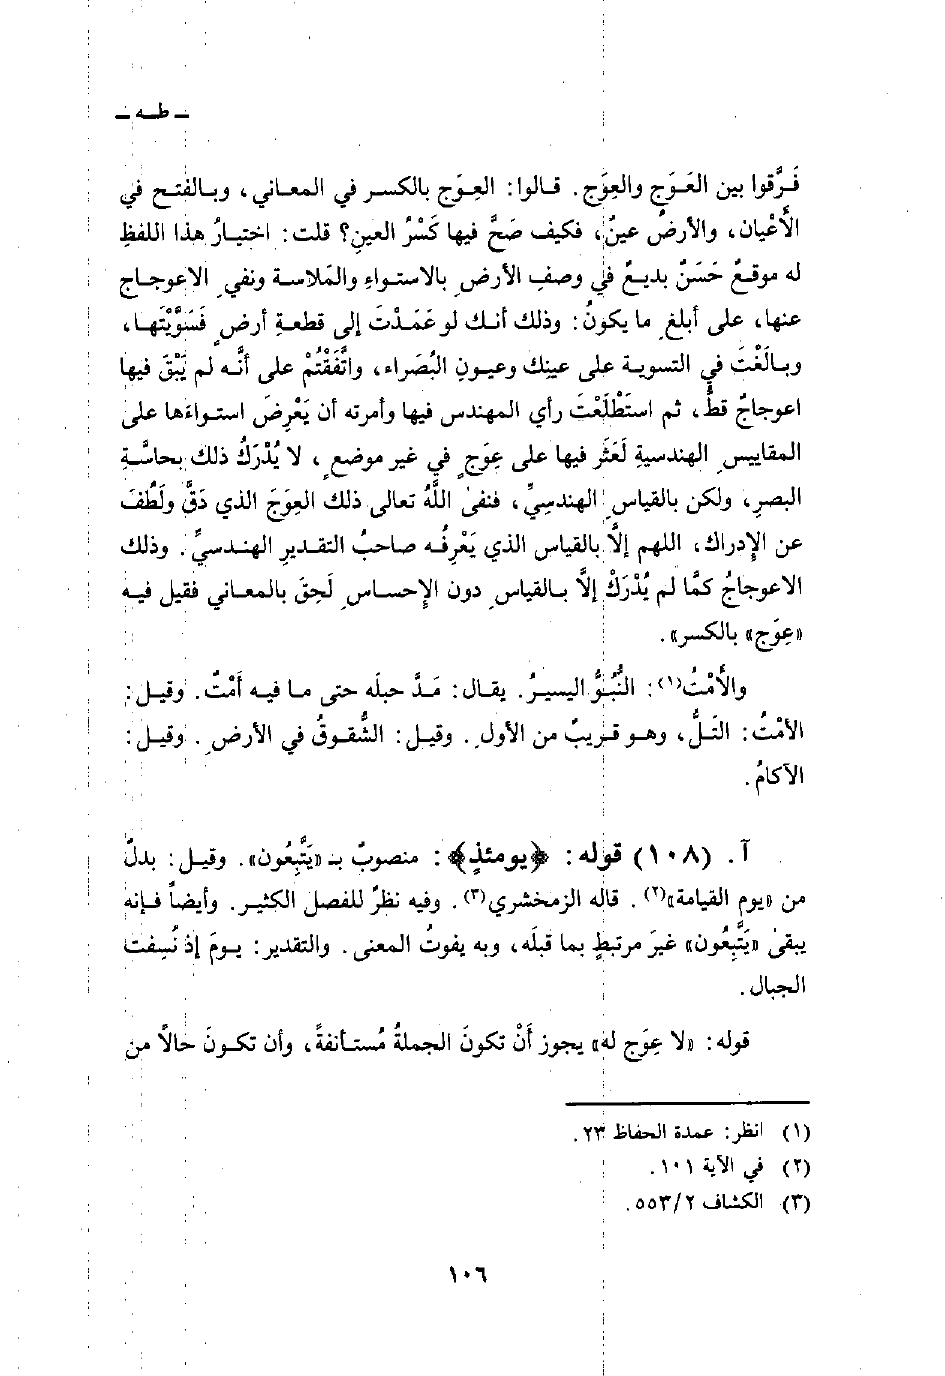 ـ طـه ـ
فَرَّقوا بين العَـوَج والعِوَج. قـالوا: العِـوَج بالكسـر في المعـاني، وبـالفتـح في
الأَعْيان، والأرضُ عينٌ، فكيف صَحَّ فيها كَسْرُ العينِ؟ قلت: اختيـارُ هـذا اللفظِ
له موقـعٌ حَسَنٌ بديـعٌ في وصفِ الأرضِ بالاستـواءِ والمَلاسـة ونفيِ الاعوجـاج
عنهـا، على أبلغِ ما يكونُ: وذلك أنـك لو عَمَـدْتَ إلى قطعـةِ أرضٍ فَسَوَّيْتَهـا،
وبـالَغْتَ في التسويـة على عينك وعيـونِ البُصَراء، واتَّفَقْتُمْ على أنَّـه لم يَبْقَ فيها
اعوجاجٌ قطُّ، ثم استَطْلَعْتَ رأي المهندس فيها وأمرته أن يَعْرِضَ استـواءَها على
المقاييسِ الهندسيةِ لَعَثَر فيها على عِوَجٍ في غير موضعٍ، لا يُدْرَكُ ذلك بحاسَّةِ
البصرِ، ولكن بالقياسِ الهندسِيِّ، فنفىٰ اللَّهُ تعالى ذلك العِوَجَ الذي دَقَّ ولَطُفَ
عن الإِدراك، اللهم إلَّا بالقياس الذي يَعْرِفُـه صاحبُ التقـديرِ الهنـدسيِّ. وذلك
الاعوجاجُ كمَّا لم يُدْرَكْ إلَّا بـالقياسِ دون الإِحسـاسِ لَحِقَ بالمعـاني فقيل فيـه
«عِوَج» بالكسر».
والأَمْتُ(١): النُّبُوُّ اليسيرُ. يقـال: مَـدَّ حبلَه حتى مـا فيـه أَمْتٌ. وقيـل:
الأَمْتُ: التَـلُّ، وهـو قـريبٌ من الأولِ. وقيـل: الشُّقـوقُ في الأرضِ. وقيـل:
الآكامُ.
آ. (١٠٨) قوله: ﴿يومئذٍ﴾: منصوبٌ بـ «يَتَّبِعُون». وقيـل: بدلٌ
من «يوم القيامة»(٢). قاله الزمخشري(٣). وفيه نظرٌ للفصل الكثيـر. وأيضـاً فـإنه
يبقىٰ «يَتَّبِعُون» غيرَ مرتبطٍ بما قبلَه، وبه يفوتُ المعنى. والتقدير: يـومَ إذ نُسِفت
الجبال.
قوله: «لا عِوَج له» يجوز أَنْ تكونَ الجملةُ مُستـأنفةً، وأن تكـونَ حالاً من
(١) انظر: عمدة الحفاظ ٢٣.
(٢) في الآية ١٠١.
(٣) الكشاف ٥٥٣/٢.
١٠٦